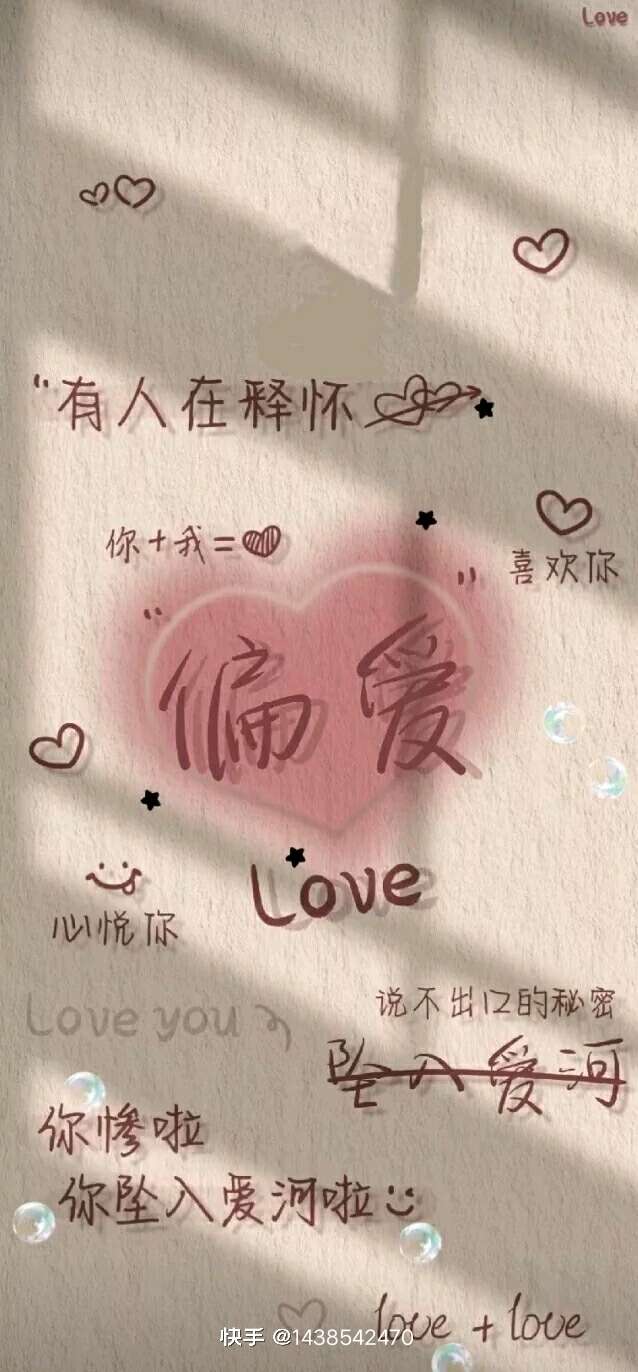 Love
"有人在释怀
你+我=
喜欢你
"偏爱"
Love
心悦你
说不出口的秘密
Love you
坠入爱河
你惨啦
你坠入爱河啦
love + love
快手 @1438542470